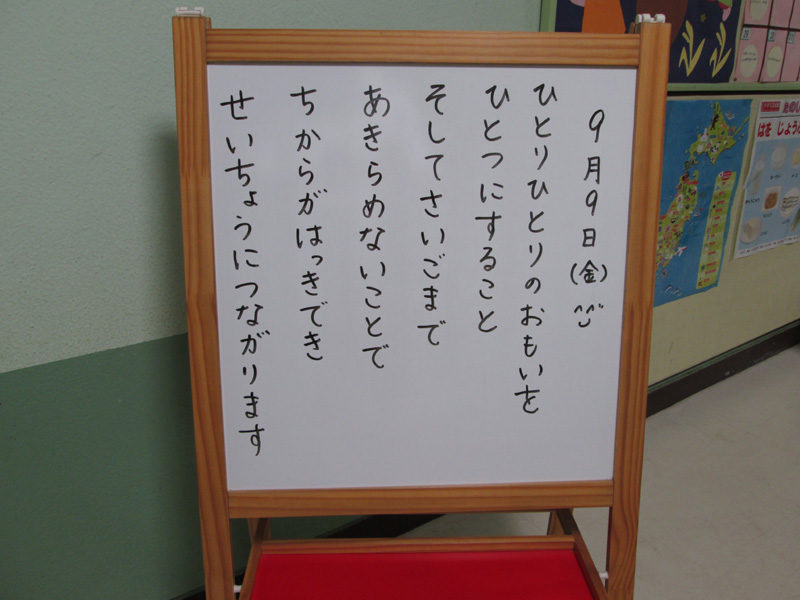 9月9日(金)
ひとりひとりのおもいを
ひとつにすること
そしてさいごまで
あきらめないことで
ちからがはっきでき
せいちょうにつながります